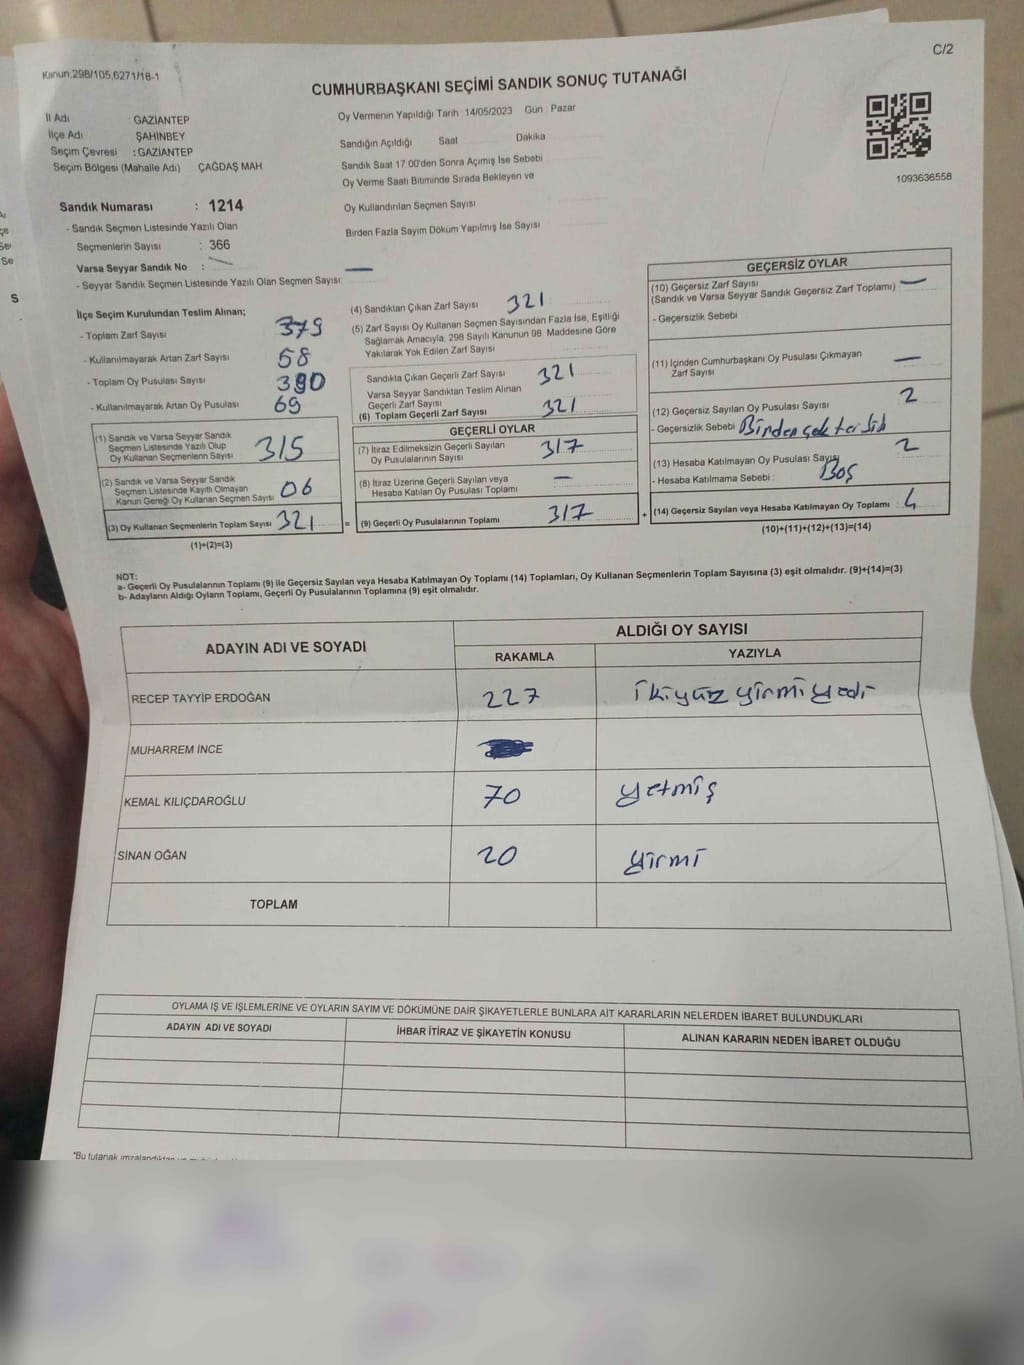 C/2
Kanun;298/105,6271/18-1
CUMHURBAŞKANI SEÇİMİ SANDIK SONUÇ TUTANAĞI
İl Adı GAZİANTEP
İlçe Adı ŞAHİNBEY
Seçim Çevresi : GAZİANTEP
Seçim Bölgesi (Mahalle Adı) ÇAĞDAŞ MAH
Oy Vermenin Yapıldığı Tarih 14/05/2023 Gün : Pazar
Sandığın Açıldığı Saat Dakika
Sandık Saat 17 00'den Sonra Açımış İse Sebebi
Oy Verme Saati Bitiminde Sırada Bekleyen ve
Oy Kullandırılan Seçmen Sayısı
Birden Fazla Sayım Döküm Yapılmış İse Sayısı
1093636558
Sandık Numarası : 1214
- Sandık Seçmen Listesinde Yazılı Olan
Seçmenlerin Sayısı : 366
Varsa Seyyar Sandık No : —
- Seyyar Sandık Seçmen Listesinde Yazılı Olan Seçmen Sayısı: —
İlçe Seçim Kurulundan Teslim Alınan;
- Toplam Zarf Sayısı 379
- Kullanılmayarak Artan Zarf Sayısı 58
- Toplam Oy Pusulası Sayısı 390
- Kullanılmayarak Artan Oy Pusulası 69
(1) Sandık ve Varsa Seyyar Sandık
Seçmen Listesinde Yazılı Olup
Oy Kullanan Seçmenlerin Sayısı 315
(2) Sandık ve Varsa Seyyar Sandık
Seçmen Listesinde Kayıtlı Olmayan
Kanun Gereği Oy Kullanan Seçmen Sayısı 06
(3) Oy Kullanan Seçmenlerin Toplam Sayısı 321 =
(1)+(2)=(3)
(4) Sandıktan Çıkan Zarf Sayısı 321
(5) Zarf Sayısı Oy Kullanan Seçmen Sayısından Fazla İse, Eşitliği
Sağlamak Amacıyla, 298 Sayılı Kanunun 98. Maddesine Göre
Yakılarak Yok Edilen Zarf Sayısı
Sandıkta Çıkan Geçerli Zarf Sayısı 321
Varsa Seyyar Sandıktan Teslim Alınan
Geçerli Zarf Sayısı
(6) Toplam Geçerli Zarf Sayısı 321
GEÇERLİ OYLAR
(7) İtiraz Edilmeksizin Geçerli Sayılan
Oy Pusulalarının Sayısı 317
(8) İtiraz Üzerine Geçerli Sayılan veya
Hesaba Katılan Oy Pusulası Toplamı —
(9) Geçerli Oy Pusulalarının Toplamı 317 +
GEÇERSİZ OYLAR
(10) Geçersiz Zarf Sayısı
(Sandık ve Varsa Seyyar Sandık Geçersiz Zarf Toplamı) —
- Geçersizlik Sebebi
(11) İçinden Cumhurbaşkanı Oy Pusulası Çıkmayan
Zarf Sayısı —
(12) Geçersiz Sayılan Oy Pusulası Sayısı 2
- Geçersizlik Sebebi Birden çok tercih
(13) Hesaba Katılmayan Oy Pusulası Sayısı 2
- Hesaba Katılmama Sebebi : Boş
(14) Geçersiz Sayılan veya Hesaba Katılmayan Oy Toplamı : 4
(10)+(11)+(12)+(13)=(14)
NOT:
a- Geçerli Oy Pusulalarının Toplamı (9) ile Geçersiz Sayılan veya Hesaba Katılmayan Oy Toplamı (14) Toplamları, Oy Kullanan Seçmenlerin Toplam Sayısına (3) eşit olmalıdır. (9)+(14)=(3)
b- Adayların Aldığı Oyların Toplamı, Geçerli Oy Pusulalarının Toplamına (9) eşit olmalıdır.
ADAYIN ADI VE SOYADI ALDIĞI OY SAYISI
RAKAMLA YAZIYLA
RECEP TAYYİP ERDOĞAN 227 ikiyüz yirmi yedi
MUHARREM İNCE
KEMAL KILIÇDAROĞLU 70 yetmiş
SİNAN OĞAN 20 yirmi
TOPLAM
OYLAMA İŞ VE İŞLEMLERİNE VE OYLARIN SAYIM VE DÖKÜMÜNE DAİR ŞİKAYETLERLE BUNLARA AİT KARARLARIN NELERDEN İBARET BULUNDUKLARI
ADAYIN ADI VE SOYADI İHBAR İTİRAZ VE ŞİKAYETİN KONUSU ALINAN KARARIN NEDEN İBARET OLDUĞU
*Bu tutanak imzalandıktan